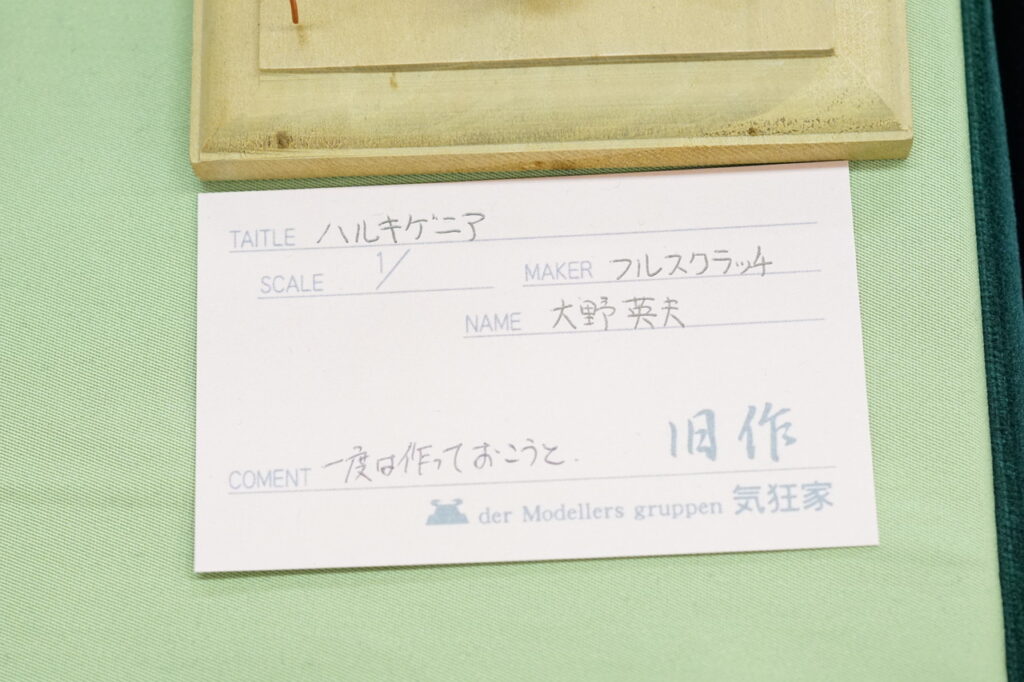 TAITLE ハルキゲニア
SCALE 1/
MAKER フルスクラッチ
NAME 大野英夫
旧作
COMENT 一度は作っておこうと.
der Modellers gruppen 気狂家